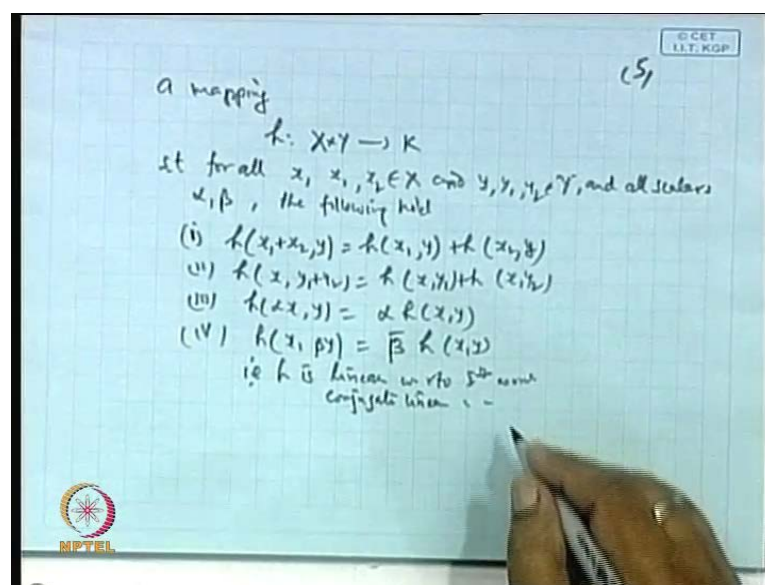 © CET
I.I.T. KGP
(5)
a mapping
h: X×Y → K
st for all x, x₁, x₂ ∈ X and y, y₁, y₂ ∈ Y, and all scalars
α, β, the following hold
(i) h(x₁+x₂, y) = h(x₁, y) + h(x₂, y)
(ii) h(x, y₁+y₂) = h(x, y₁) + h(x, y₂)
(iii) h(αx, y) = α h(x, y)
(iv) h(x, βy) = β̄ h(x, y)
ie h is linear w r to
Conjugate linear " "
NPTEL